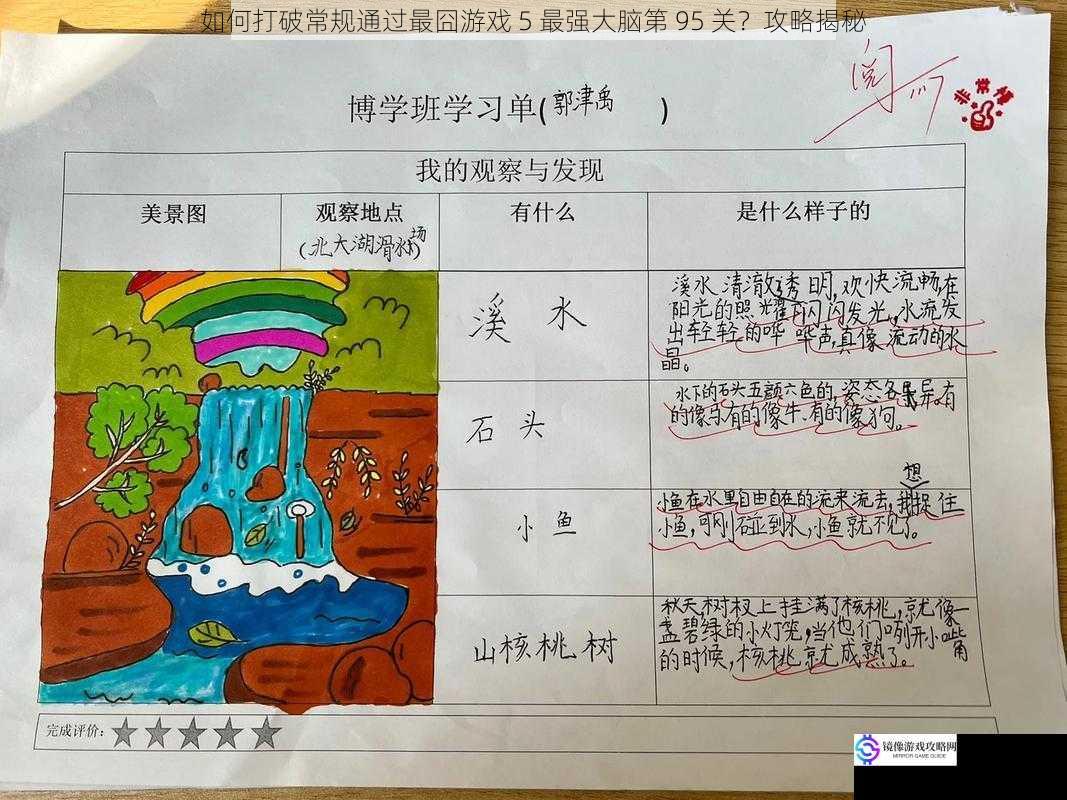 如何打破常规通过最囧游戏 5 最强大脑第 95 关？攻略揭秘
阅
非常棒
博学班学习单(郭津禹 )
我的观察与发现
美景图
观察地点
(北大湖滑水场)
有什么
是什么样子的
溪水
溪水清澈透明,欢快流畅,在
阳光的照耀下闪闪发光,水流发
出轻轻的哗哗声,真像流动的水
晶。
石头
水下的石头五颜六色的,姿态各异,有
的像马有的像牛,有的像狗。
小鱼
小鱼在水里自由自在的流来流去,我想捉住
小鱼,可刚碰到水,小鱼就不见了。
山核桃树
秋天树杈上挂满了核桃,就像一
盏碧绿的小灯笼,当他们咧开小嘴
的时候,核桃就成熟了。
完成评价:
镜像游戏攻略网
MIRROR GAME GUIDE